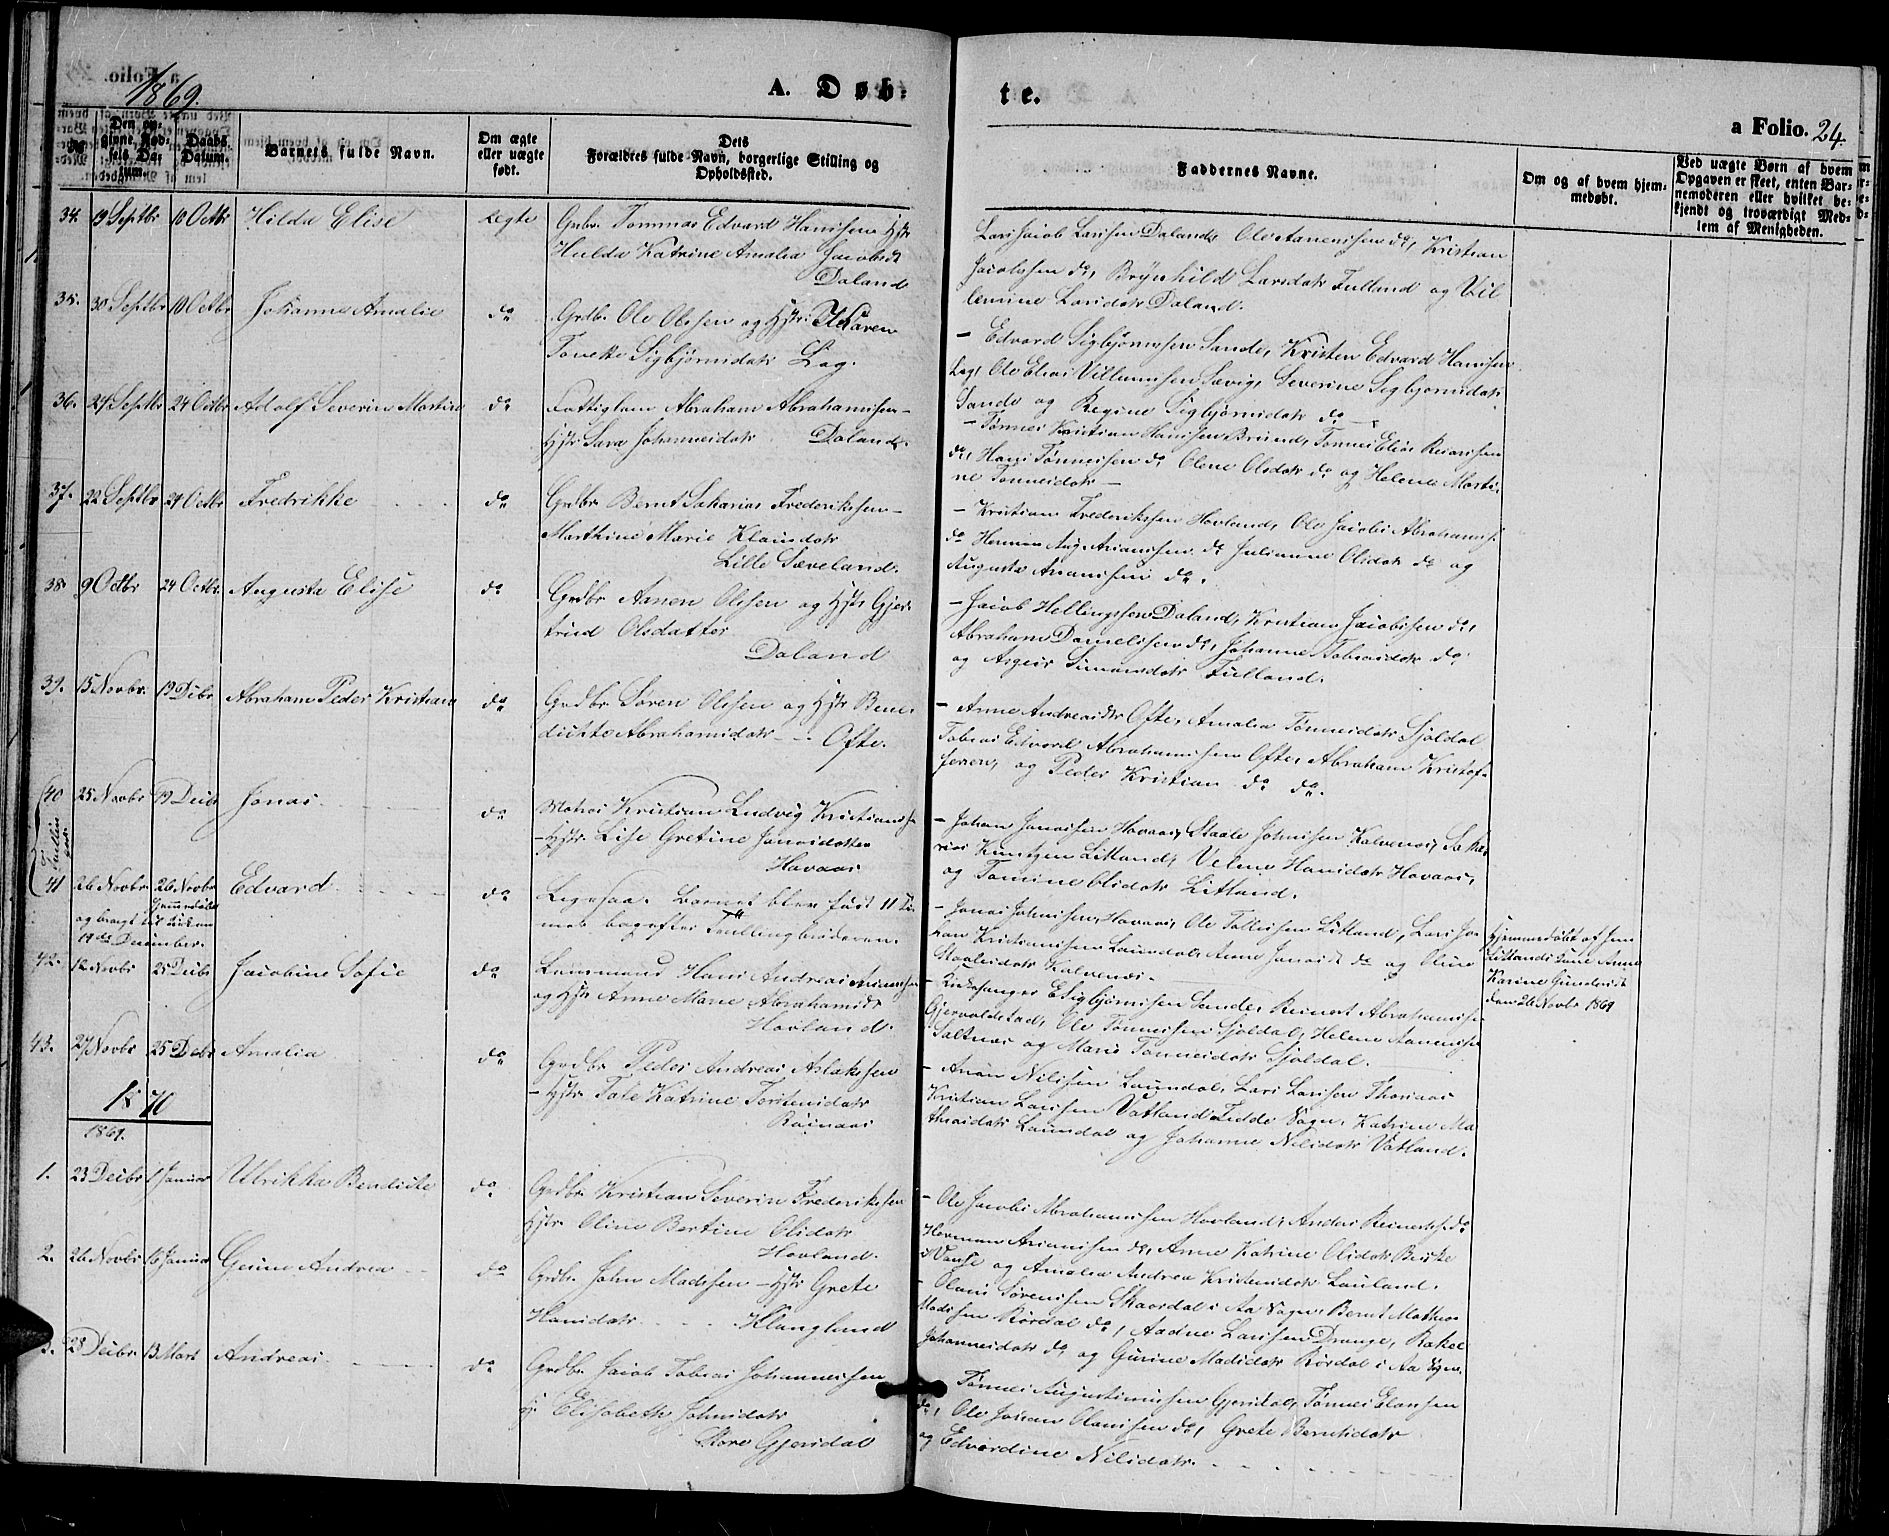 1869.
A. Døb-
te.
a Folio. 24.
No.
Den op-
givne Fød-
sels Da-
tum.
Daabs
Datum.
Barnets fulde Navn.
Om ægte
eller uægte
født.
Dets
Forældres fulde Navn, borgerlige Stilling og
Opholdssted.
Faddernes Navne.
Om og af hvem hjem-
medøbt.
Ved uægte Børn af hvem
Opgaven er skeet, enten Bar-
nemoderen eller hvilket be-
kjendt og troværdigt Med-
lem af Menigheden.
34. 19 Septbr 10 Octbr Hilda Elise ægte Grdbr. Tommas Edvard Hansen Hstr
Hulda Katrine Amalia Jacobsdt
Daland
Lars Jacob Larsen Daland, Ole Aanensen do, Kristian
Jacobsen do, Brynhild Larsdatr Fulland og Vil
lemine Larsdatr Daland.
35. 30 Septbr 10 Octbr Johanne Amalie do Grdb. Ole Olsen og Hstr. Karen
Toneke Sigbjørnsdatr Lag.
- Edvard Sigbjørnsen Sande, Kristen Edvard Hansen
Lag, Ole Elias Villumsen Sævig, Severine Sigbjørnsdatr
Sande og Regine Sigbjørnsdatr do
36. 27 Septbr 24 Octbr Adolf Severin Martin do Fattiglem Abraham Abrahamsen -
Hstr Sara Johannesdatr Daland.
- Tønnes Kristian Hansen Brind, Tønnes Elias Reiersen
do, Hans Tønnesen do Olene Olsdatr do og Helene Marti-
ne Tønnesdatr -
37. 22 Septbr 24 Octbr Fredrikke do Grdbr Bernt Sakarias Frederiksen -
Marthine Marie Klausdatr
Lille Sæveland.
- Kristian Frederiksen Hovland, Ole Jacobs Abrahams.
do Herman Aug. Ariansen do Julianne Olsdatr do og
Augusta Ariansen do.
38. 9 Octbr 24 Octbr. Augusta Elise do Grdbr Aanen Olsen og Hstr Gjer-
trud Olsdatter
Daland
- Jacob Hellingsen Daland, Kristian Jacobsen do,
Abraham Danielsen do, Johanne Tobiasdatr do
og Asgier Simonsdatr Fulland.
39. 15 Novbr. 19 Dcbr Abraham Peder Kristian do Grdbr Søren Olsen og Hstr Bene-
dictte Abrahamsdatr - Ofte.
- Anne Andreasdtr Ofte, Amalia Tønnesdatr Sjøldal
Tobias Edvard Abrahamsen Ofte, Abraham Kristof-
fersen, og Peder Kristian do do.
40 25 Novbr 19 Decbr Jonas. do Matros Kristian Ludvig Kristians
- Hstr. Lise Gretine Jonasdatter
Havaas
- Johan Jonassen Havaas, Staale Johnsen Kalvenes, Saka-
rias Knutsen Litland, Velene Hansdatr Havaas,
og Tomine Olsdatr Litland.
41 26 Novbr. 26 Novbr
Hjemmedøbt
og bragt til Kirken
19de December.
Edvard. do Ligesaa. Barnet blev født 11 Ti-
mer bagefter Tvillingbroderen.
- Jonas Johnsen Havaas, Ole Tollisen Litland, Lars Jo-
han Kristiansen Laundal, Anne Jonasdt do og Oline
Staalesdatr Kalvenes -
Hjemmedøbt af Jens
Litlands Kone Anne
Karine Gundersdt
den 26 Novbr 1869
42. 12 Novbr 25 Decbr Jacobine Sofie do Lensmand Hans Andreas Ariansen
og Hstr Anne Marie Abrahamsdt
Hovland.
- Kirkesanger E Sigbjørnsen Sande, Reinert Abrahamsen
Gjervoldstad, Ole Tønnesen Sjøldal, Helene Aanensen
Saltnes og Marie Tønnesdatr Sjøldal.
43. 27 Novbr 25 Decbr Amalia do Grdbr Peder Andreas Aslaksen
- Hstr. Tale Katrine Torstensdatr
Røinaas
- Anan Nilsen Laundal, Lars Larsen Thorsaas
Kristian Larsen Vatland Fedde Sogn, Katrine Ma
thiasdatr Laundal og Johanne Nilsdatr Vatland.
1870
1869.
1. 23 Decbr 1 Januar Ulrikka Bendicte do Grdbr. Kristian Severin Frederiksen
Hstr. Oline Bertine Olsdatr
Hovland.
- Ole Jacobs Abrahamsen Hovland, Anders Reinertsen do
Herman Ariansen do, Anne Katrine Olsdatr Berje
i Vanse og Amalia Andrea Kristensdatr Lauland.
2. 26 Novbr 16 Januar Geine Andrea do Grdbr. John Madsen - Hstr Grete
Hansdatr Klungland
- Olaus Sørensen Skaardal i Aa Sogn, Bernt Mathias
Madsen Rørdal do, Aadne Larsen Drange, Rakel
Johannesdatr do og Gurine Madsdatr Rørdal i Aa Sogn.
3. 28 Decbr 13 Mart Andreas. do Grdbr Jacob Tobias Johannesen
og Elisabeth Johnsdatr
Store Gjersdal
Tønnes Augustinusen Gjersdal, Tønnes Elausen
do, Ole Johan Olausen do, Grete Berntsdatr
og Edvardine Nilsdatr.